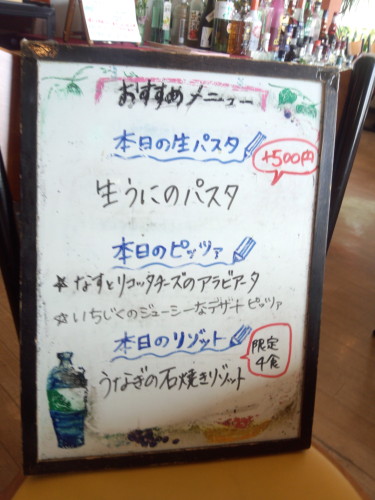 おすすめメニュー
本日の生パスタ
+500円
生うにのパスタ
本日のピッツァ
☆なすとリコッタチーズのアラビアータ
☆いちじくのジューシーなデザートピッツァ
本日のリゾット
限定
4食
うなぎの石焼きリゾット